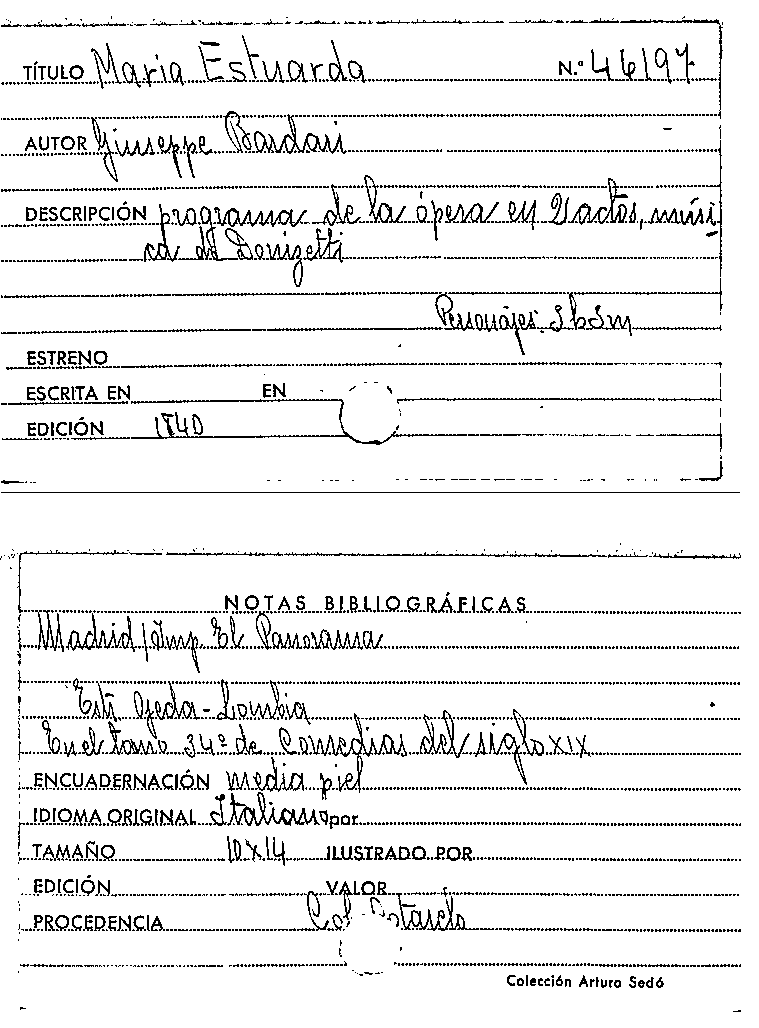 TÍTULO Maria Estuarda N.º 46197
AUTOR Giuseppe Bardari
DESCRIPCIÓN programa de la ópera en 2 actos, músi
ca de Donizetti
Personajes:
ESTRENO
ESCRITA EN EN
EDICIÓN 1840
NOTAS BIBLIOGRÁFICAS
Madrid/Imp. El Panorama
En el tomo 34º de Comedias del siglo XIX
ENCUADERNACIÓN media piel
IDIOMA ORIGINAL Italiano por
TAMAÑO 10x14 ILUSTRADO POR
EDICIÓN VALOR
PROCEDENCIA Col. Cotarelo
Colección Arturo Sedó